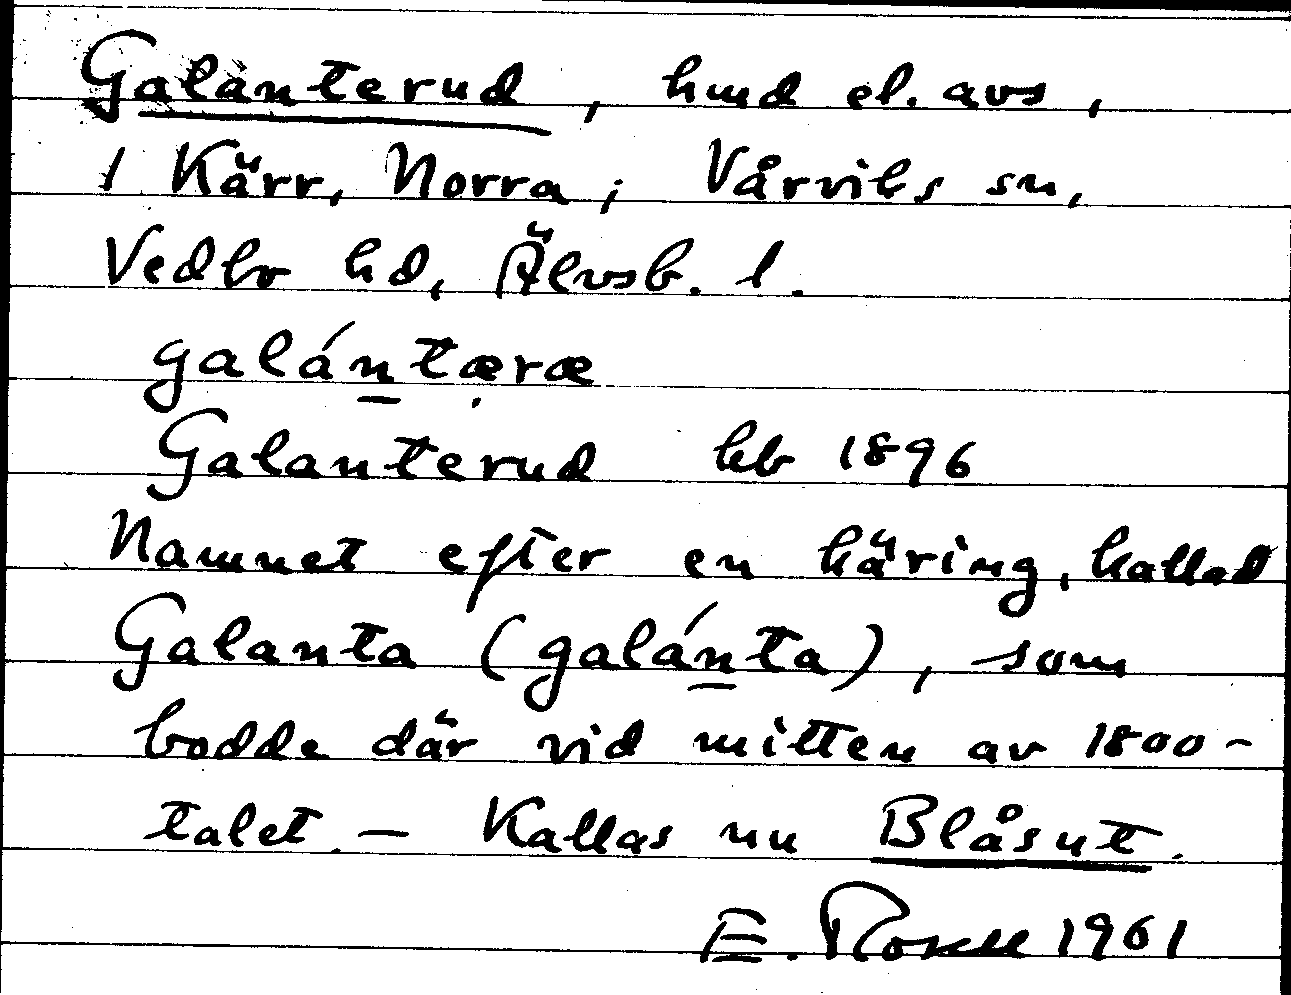 Galanterud, hmd el. avs,
i Kärr, Norra; Vårviks sn,
Vedbo hd, Älvsb. l.
galántæræ
Galanterud kb 1896
Namnet efter en käring, kallad
Galanta (galánta), som
bodde där vid mitten av 1800-
talet. – Kallas nu Blåsut.
E. Rosell 1961